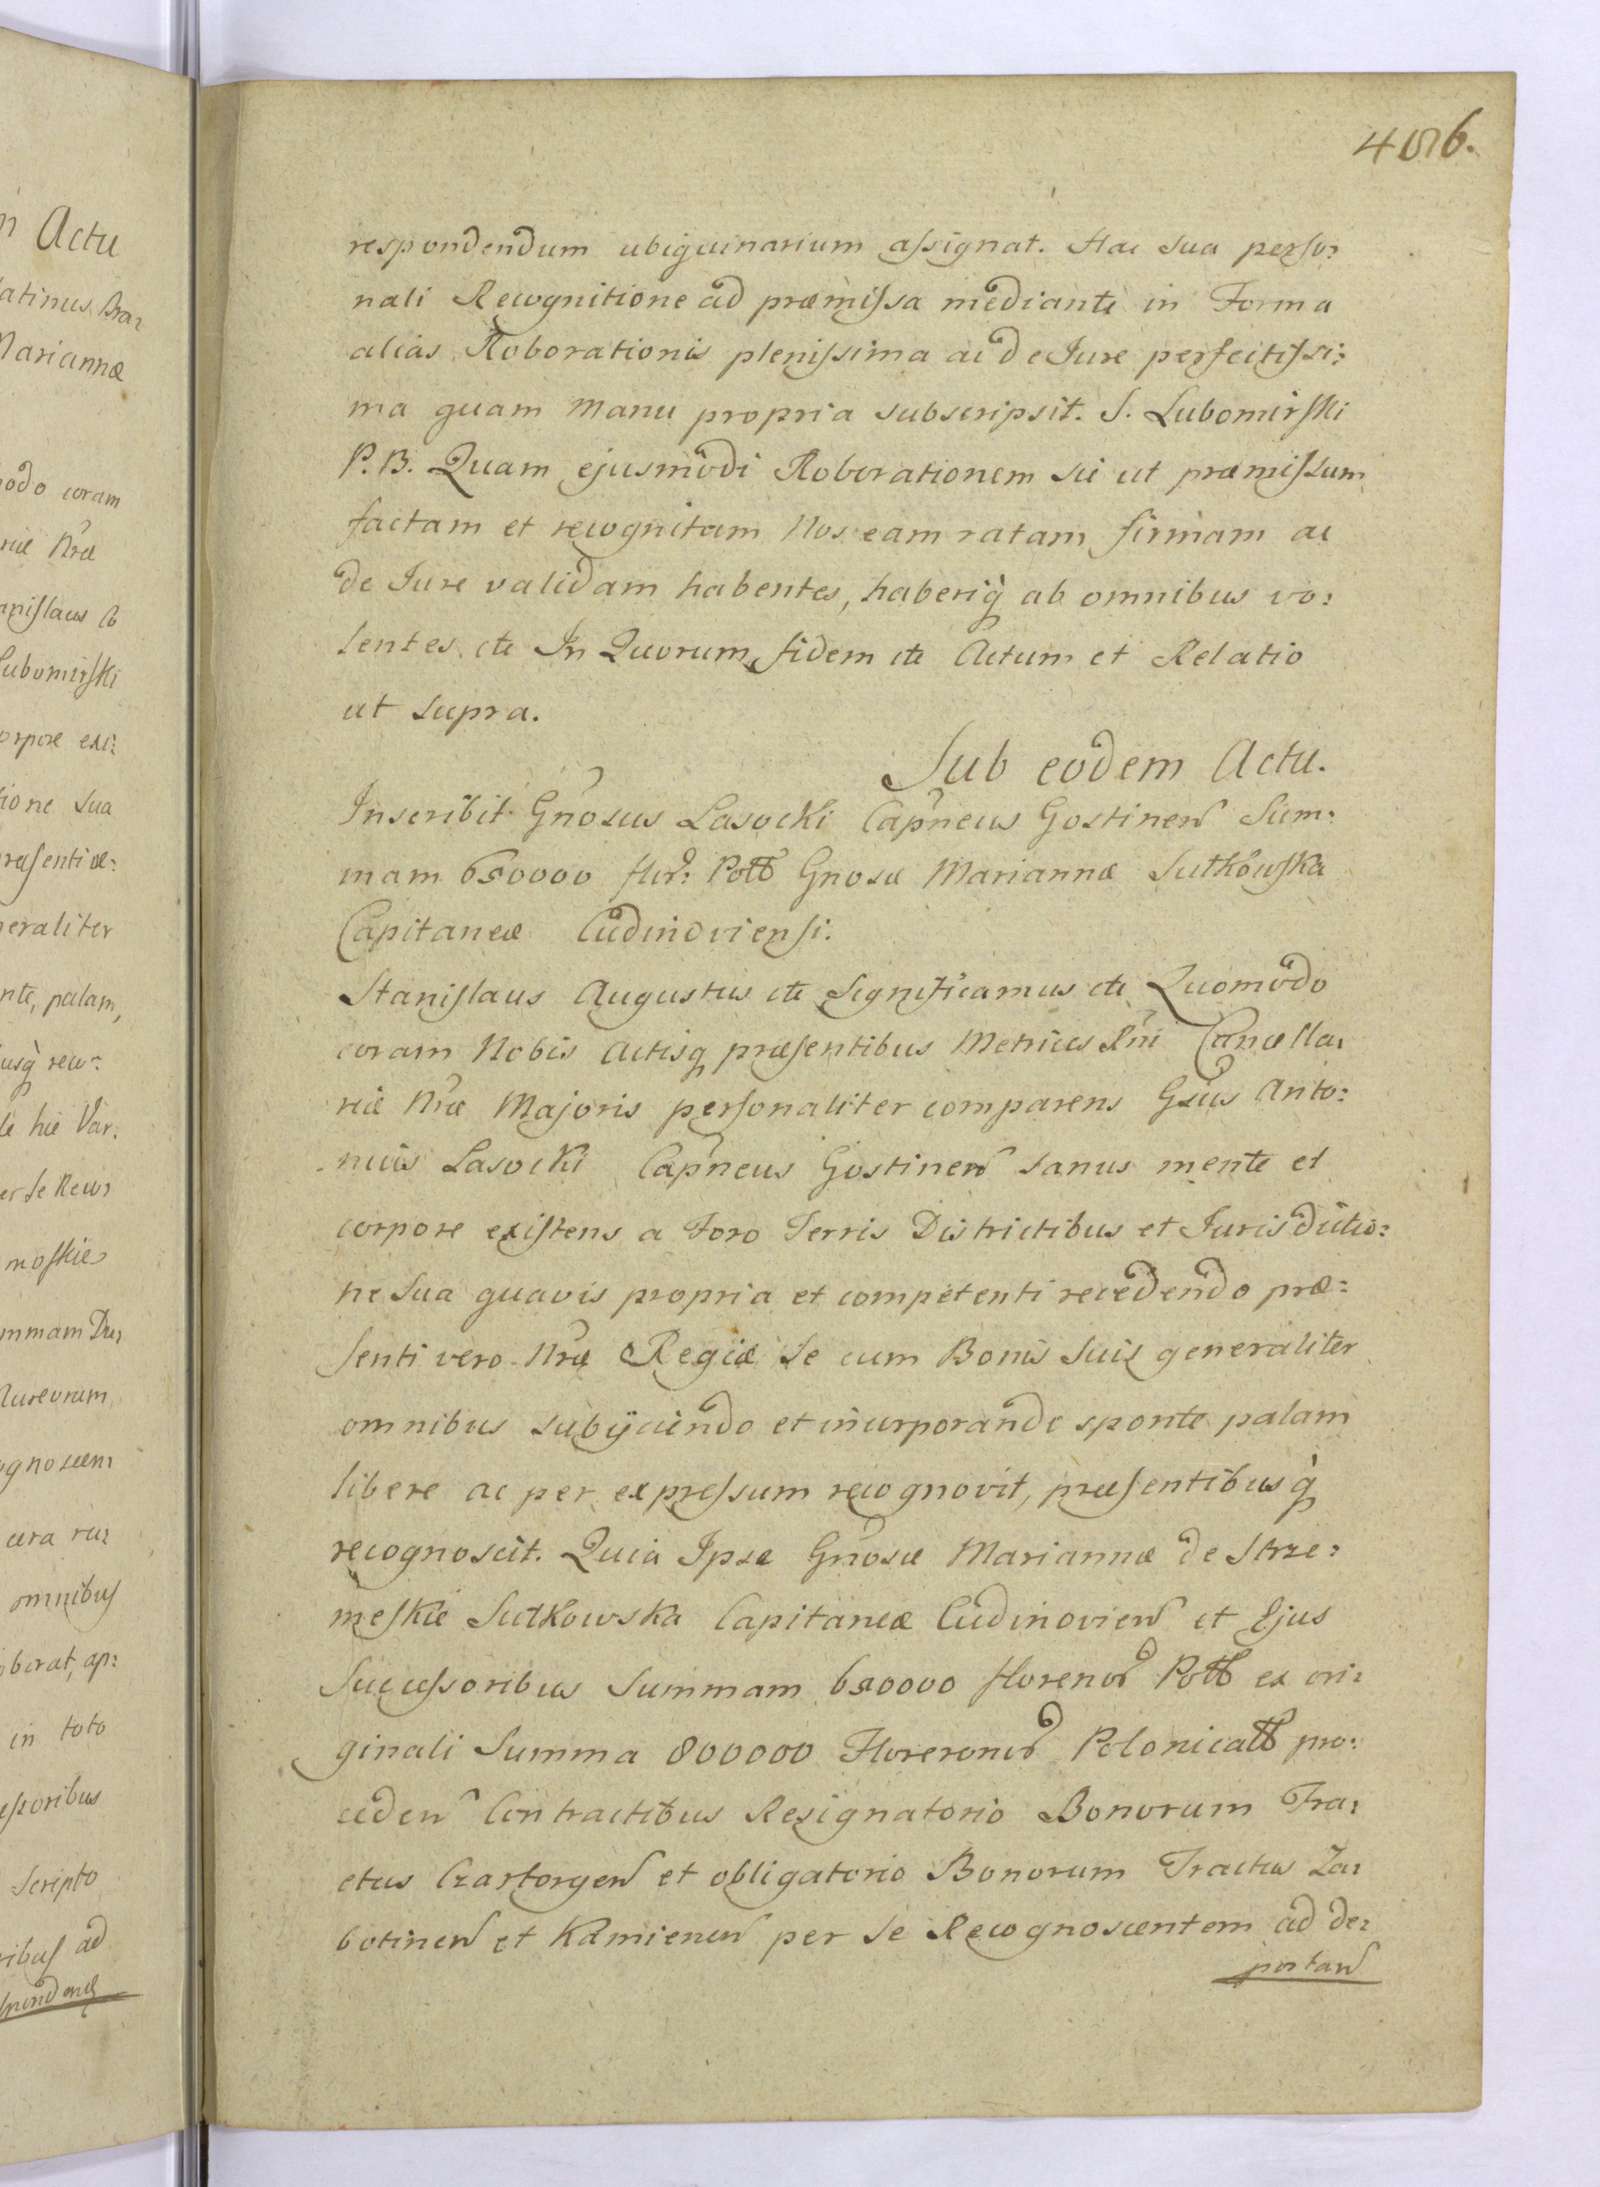 n Actu
latinus Bra:
Mariannæ
modo coram
riæ Nræ
anislaus
Lubomirski
orpore exi:
tione sua
ræsenti æ:
neraliter
nte, palam,
usq̀ reco:
le hic Var:
er se Reco:
moskie
ummam Du:
Aureorum
ognoscen:
cera ru:
omnibus
oborat, ap:
in toto
essoribus
Scripto
ribus ad
spondend
406.
respondendum ubiquinarium assignat. Hac sua perso:
nali Recognitione ad præmissa mediante in Forma
alias Roborationis plenissima ac de Jure perfectissi:
ma quam manu propria subscripsit. S. Lubomirski
P. B. Quam ejusmodi Roborationem sic ut præmissum
factam et recognitam Nos eam ratam, firmam ac
de Jure validam habentes, haberiq̀ ab omnibus vo:
lentes etc In Quorum fidem etc Actum et Relatio
ut supra.
Sub eodem Actu.
Inscribit Gnosus Lasocki Capneus Gostinen Sum:
mam 650000 flor: Poll Gnosæ Mariannæ Sutkowska
Capitaneæ Cudinoviensi.
Stanislaus Augustus etc Significamus etc Quomodo
coram Nobis Actisq præsentibus Metrices Rni Cancella:
riæ Nræ Majoris personaliter comparens Gsus Anto:
nius Lasocki Capneus Gostinen sanus mente et
corpore existens a Foro Terris Districtibus et Jurisdictio:
ne sua quavis propria et competenti recedendo præ:
senti vero Nræ Regiæ se cum Bonis suis generaliter
omnibus subijciendo et incorporando sponte palam
libere ac per expressum recognovit, præsentibusq̀
recognoscit. Quia Ipse Gnosæ Mariannæ de Strze:
meskie Sutkowska Capitaneæ Cudinovien et Ejus
Successoribus Summam 650000 florenor Poll ex ori:
ginali Summa 800000 Florerenor Polonicall pro:
ceden Contractibus Resignatorio Bonorum Tra:
ctus Czartoryen et obligatorio Bonorum Tractus Za:
botinen et Kamienen per se Recognoscentem ad de:
portan